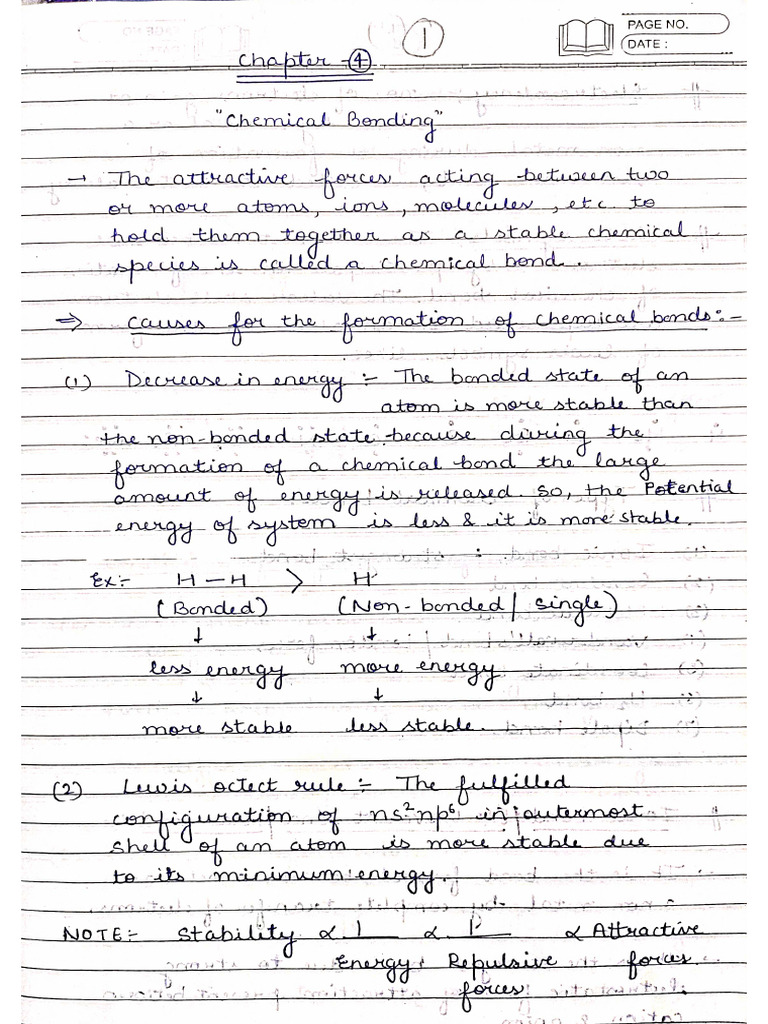 1
PAGE NO.
DATE :
Chapter - 4
"Chemical Bonding"
→ The attractive forces acting between two
or more atoms, ions, molecules, etc to
hold them together as a stable chemical
species is called a chemical bond.
⇒ causes for the formation of chemical bonds:-
(1) Decrease in energy :- The bonded state of an
atom is more stable than
the non-bonded state because during the
formation of a chemical bond the large
amount of energy is released. So, the Potential
energy of system is less & it is more stable.
Ex:- H-H > H·
(Bonded) (Non-bonded/single)
↓ ↓
less energy more energy
↓ ↓
more stable less stable.
(2) Lewis octect rule :- The fulfilled
configuration of ns²np⁶ in outermost
shell of an atom is more stable due
to its minimum energy.
NOTE:- Stability ∝ 1 ∝ 1 ∝ Attractive
Energy Repulsive forces
forces